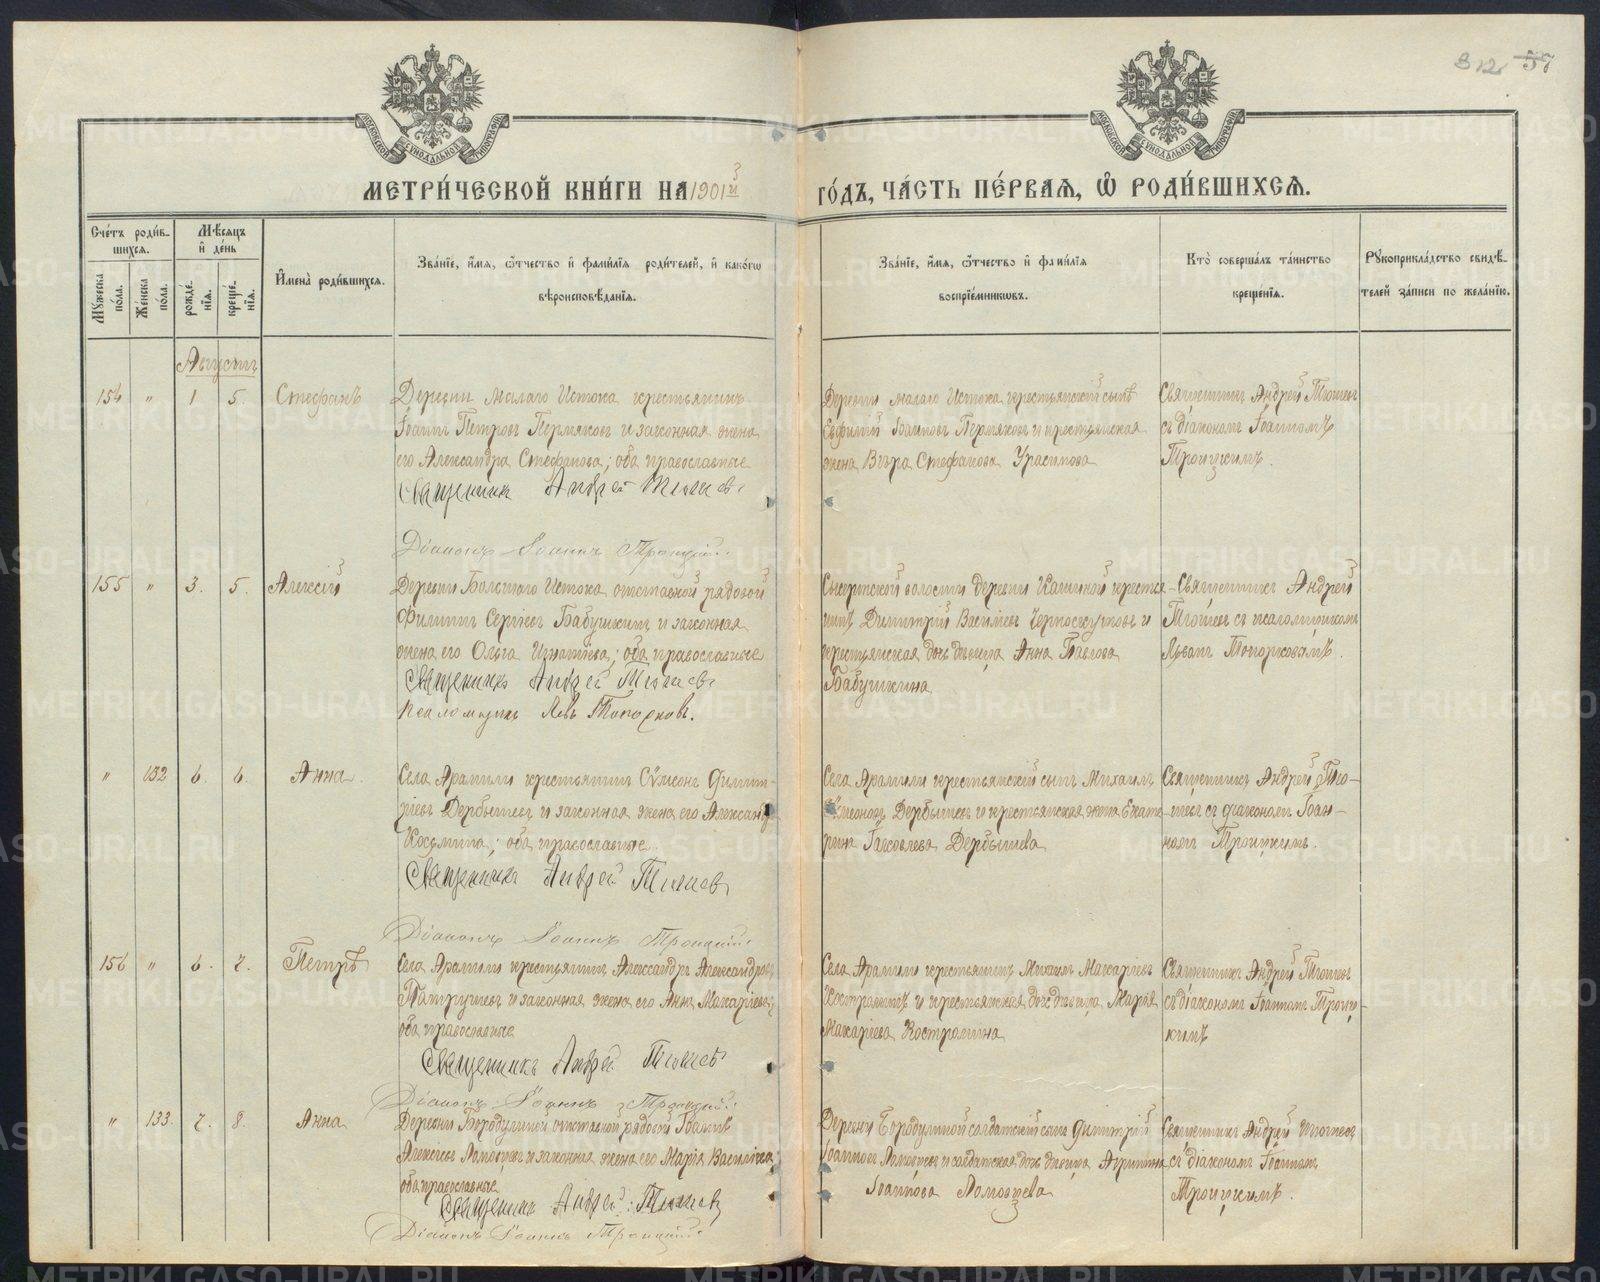 312 57
МОСКОВСКОЙ СУНОДАЛЬНОЙ ТИПОГРАФІИ
МОСКОВСКОЙ СУНОДАЛЬНОЙ ТИПОГРАФІИ
МЕТРИ́ЧЕСКОЙ КНИ́ГИ НА 1901й ГО́ДЪ, ЧА́СТЬ ПЕ́РВАЯ, Ѡ҆ РОДИ́ВШИХСЯ.
Сче́тъ роди́в-
шихся.
Мѣ́сяцъ
и҆ де́нь
Мꙋ́жеска по́ла.
Же́нска по́ла.
рожде́нїя.
креще́нїя.
И҆мена̀ роди́вшихся.
Зва́нїе, и҆́мя, ѻ҆́тчество и҆ фами́лїя роди́телей, и҆ како́гѡ
вѣроисповѣ́данїя.
Зва́нїе, и҆́мя, ѻ҆́тчество и҆ фами́лїя
воспрїе́мникѡвъ.
Кто̀ соверша́лъ та́инство
креще́нїя.
Рꙋкоприкла́дство свидѣ́-
телей за́писи по жела́нїю.
Августъ
154 " 1 5. Стефанъ
Деревни Малаго Истока крестьянинъ
Іоаннъ Петровъ Пермяковъ и законная жена
его Александра Стефанова; оба православные
Священникъ Андрей Тюшевъ
Діаконъ Іоаннъ Троицкій
Деревни Малаго Истока крестьянскій сынъ
Евфимій Іоанновъ Пермяковъ и крестьянская
жена Вѣра Стефанова
Священникъ Андрей Тюшевъ
съ діакономъ Іоанномъ
Троицкимъ.
155 " 3. 5. Алексій
Деревни Большаго Истока отставной рядовой
Филиппъ Сергіевъ Бабушкинъ и законная
жена его Ольга Игнатіева; оба православные
Священникъ Андрей Тюшевъ
Псаломщикъ Левъ Топорковъ.
Сысертской волости деревни Кашиной крестья-
нинъ Димитрій Василіевъ Черноскутовъ и
крестьянская дочь дѣвица Анна Павлова
Бабушкина
Священникъ Андрей
Тюшевъ съ псаломщикомъ
Львомъ Топорковымъ.
" 132 6. 6. Анна
Села Арамили крестьянинъ Сѵмеонъ Димит-
ріевъ Дербышевъ и законная жена его Александра
Косьмина; оба православные.
Священникъ Андрей Тюшевъ
Діаконъ Іоаннъ Троицкій
Села Арамили крестьянскій сынъ Михаилъ
Сѵмеоновъ Дербышевъ и крестьянская жена Екате-
рина Іаковлева Дербышева
Священникъ Андрей Тю-
шевъ съ діакономъ Іоан-
номъ Троицкимъ.
156 " 6. 7. Петръ
Села Арамили крестьянинъ Александръ Александровъ
Патрушевъ и законная жена его Анна Макаріева;
оба православные
Священникъ Андрей Тюшевъ
Діаконъ Іоаннъ Троицкій
Села Арамили крестьянинъ Михаилъ Макаріевъ
Костроминъ и крестьянская дочь дѣвица Марія
Макаріева Костромина
Священникъ Андрей Тюшевъ
съ діакономъ Іоанномъ Троиц-
кимъ
" 133. 7. 8. Анна
Деревни Бородулиной отставной рядовой Іоаннъ
Алексіевъ и законная жена его Марія Василіева
оба православные
Священникъ Андрей Тюшевъ
Діаконъ Іоаннъ Троицкій
Деревни Бородулиной солдатскій сынъ Димитрій
Іоанновъ и солдатская дочь дѣвица Агрипина
Іоаннова
Священникъ Андрей Тюшевъ
съ діакономъ Іоанномъ
Троицкимъ.
METRIKI.GASO-URAL.RU